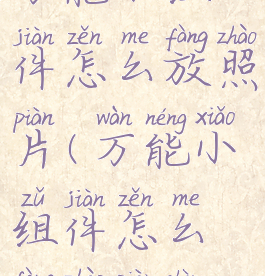 jiàn zěn me fàng zhào
件怎么放照
piàn wàn néng xiǎo
片(万能小
zǔ jiàn zěn me
组件怎么